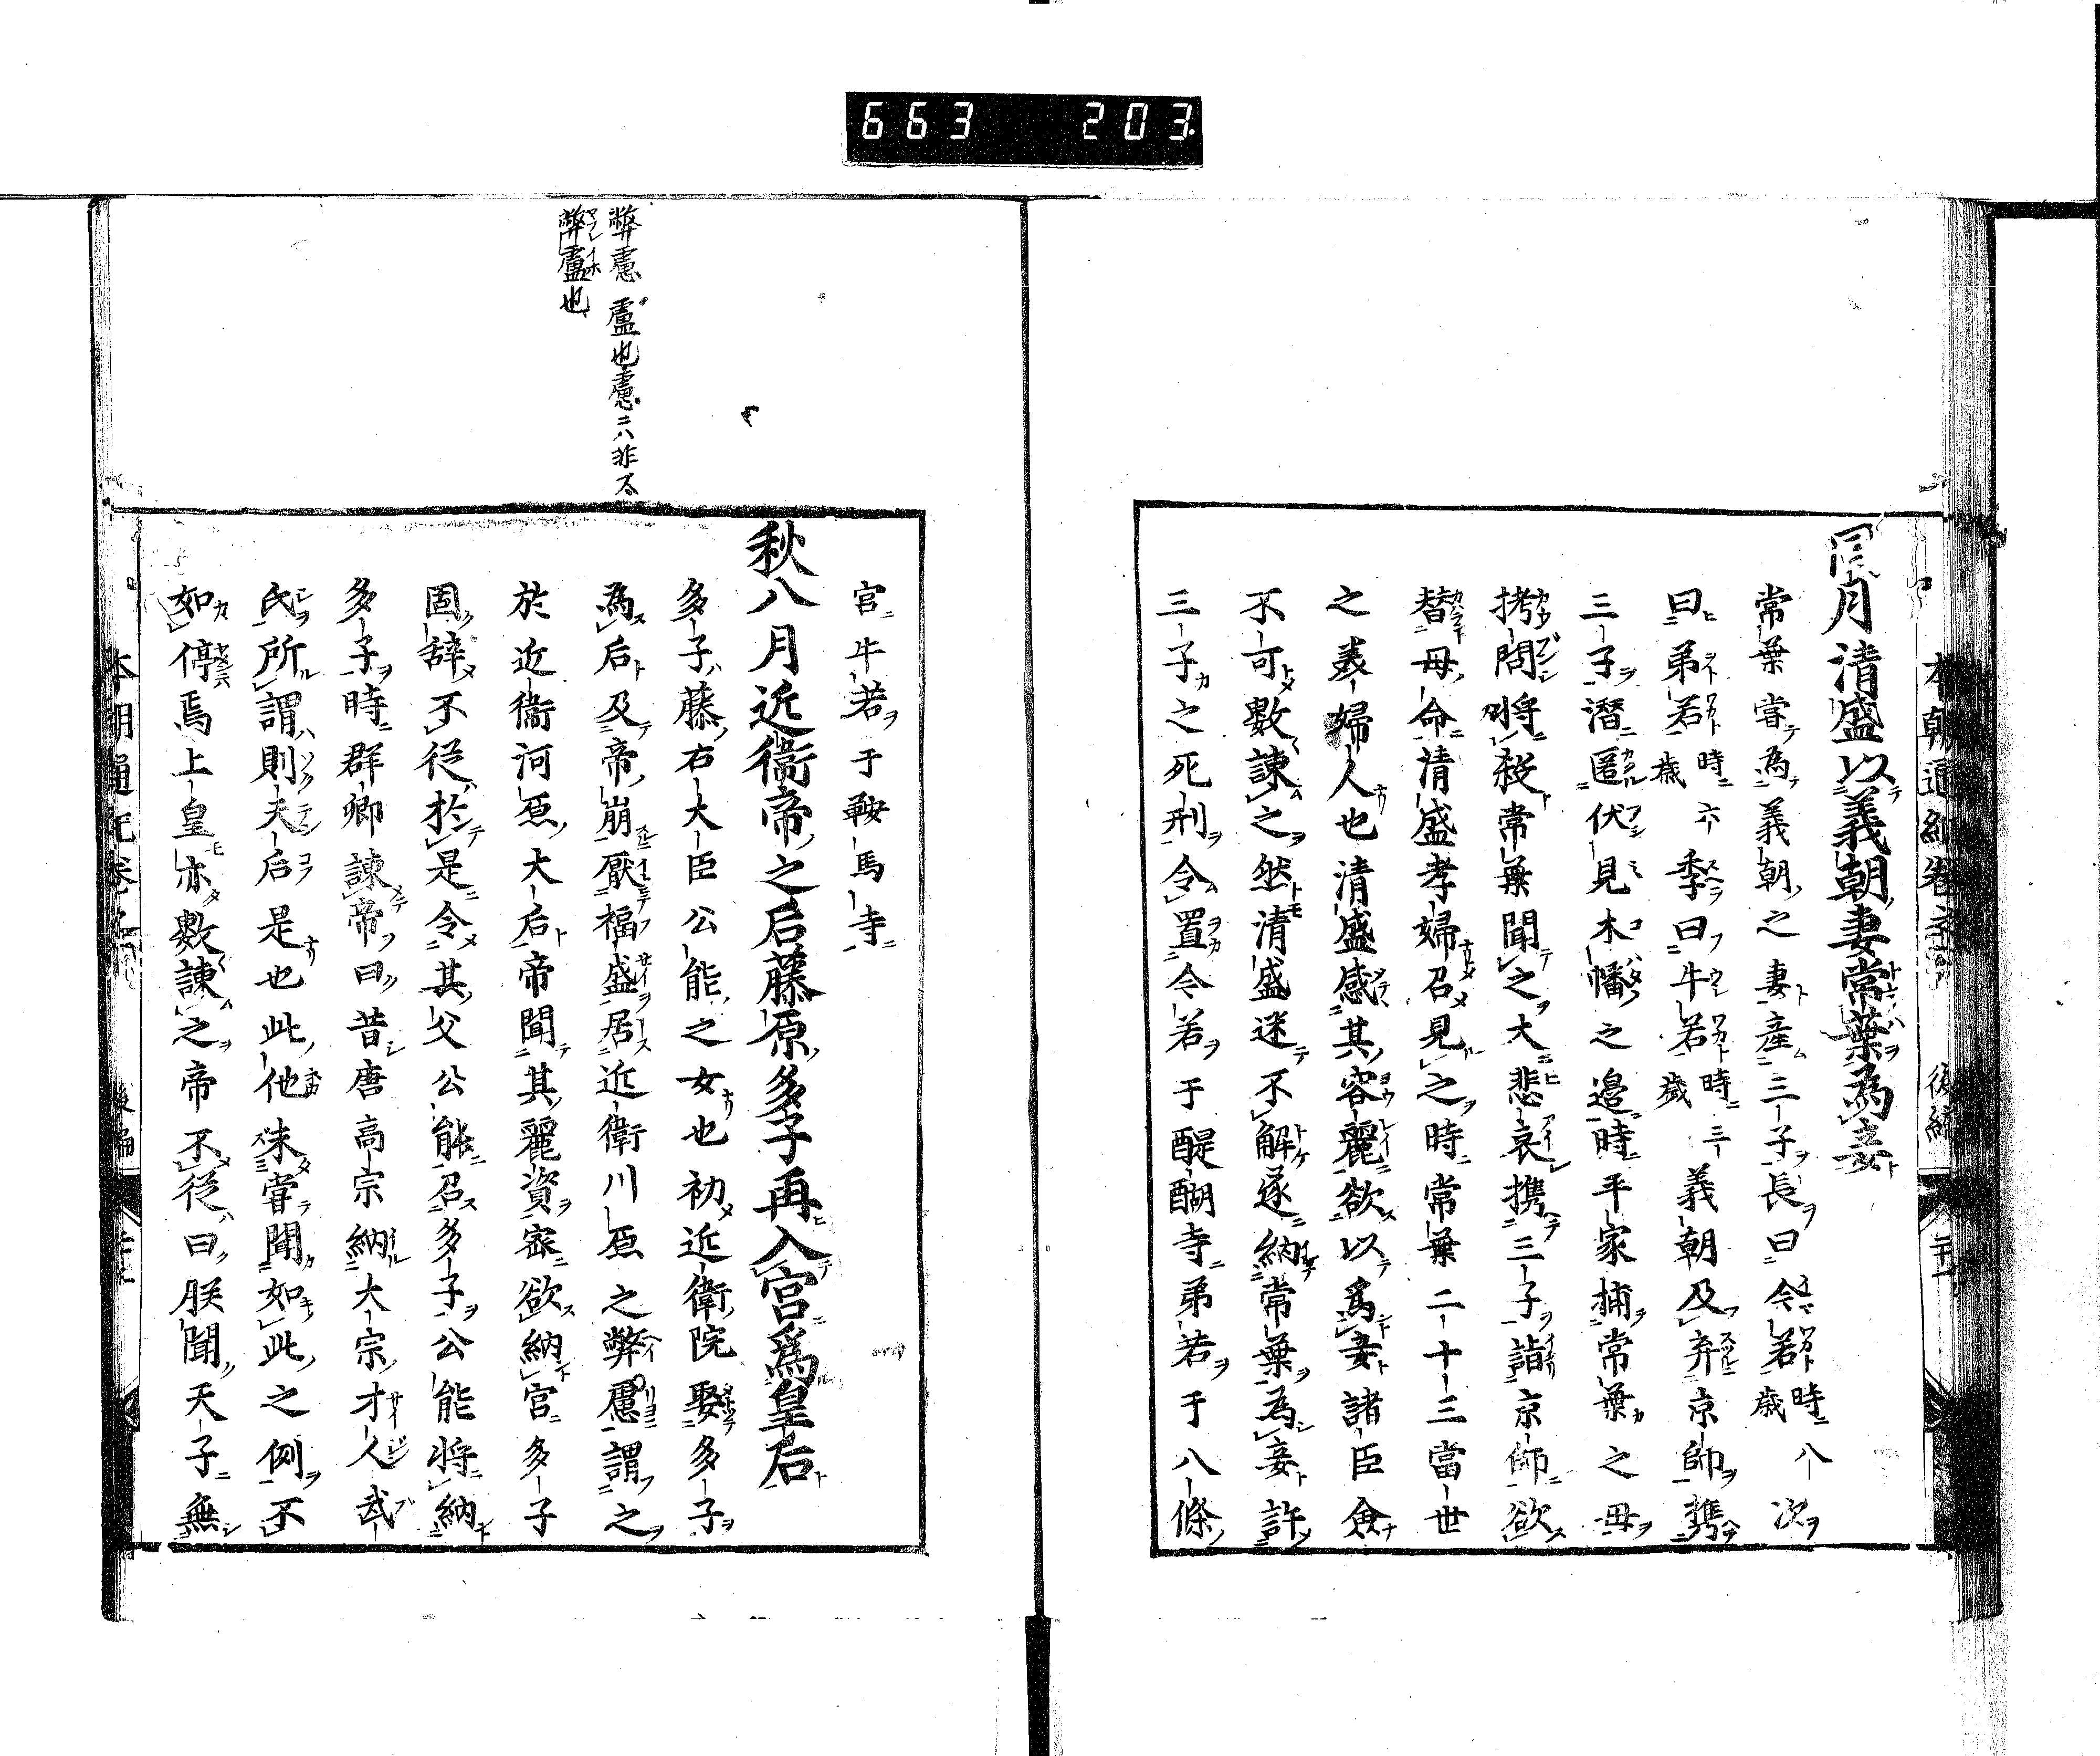 663 203.
本朝通紀巻 後編
同月清盛以義朝妻常葉為妾
常葉嘗為義朝之妻産三子長曰今若時八歳次
曰弟若時六歳季曰牛若時三歳義朝及弃京師携
三子潜匿伏見木幡之邉時平家捕常葉之母
拷問将殺常葉聞之大悲哀携三子詣京師欲
替母命清盛孝婦召見之時常葉二十三當世
之美婦人也清盛感其容麗欲以為妾諸臣僉
不可數諌之然清盛迷不解遂納常葉為妾許
三子之死刑令置今若于醍醐寺弟若于八條
宮牛若于鞍馬寺
秋八月近衞帝之后藤原多子再入宮為皇后
多子藤右大臣公能之女也初近衛院娶多子
為后及帝崩厭福盛居近衛川原之弊慮謂之
於近衞河原大后帝聞其麗資密欲納宮多子
固辞不従於是令其父公能召多子公能将納
多子時群卿諌帝曰昔唐高宗納太宗才人武
氏所謂則天后是也此他未嘗聞如此之例不
如停焉上皇亦數諌之帝不従曰朕聞天子無
弊慮盧也慮ニハ非ス
弊盧也
本朝通紀巻 後編